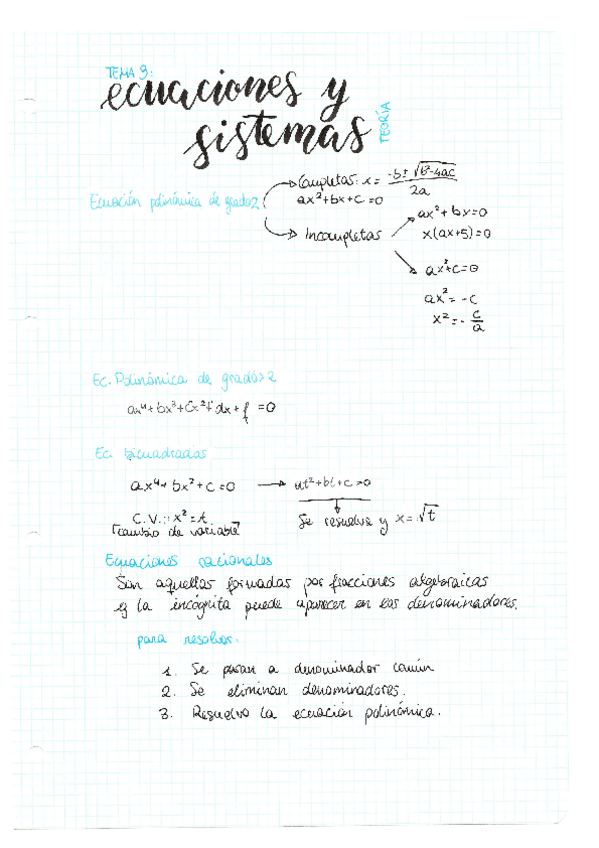 TEMA 3:
ecuaciones y
sistemas
TEORÍA
Ecuación polinómica de grado 2
Completas: x = -b ± √b²-4ac / 2a
ax²+bx+c=0
Incompletas
ax²+bx=0
x(ax+b)=0
ax²+c=0
ax² = -c
x² = - c/a
Ec. Polinómica de grado>2
ax⁴+bx³+cx²+dx+f =0
Ec. bicuadradas
ax⁴+bx²+c=0 → at²+bt+c=0
C.V.: x²=t
Se resuelve y x=√t
[cambio de variable]
Ecuaciones racionales
Son aquellas formadas por fracciones algebraicas
y la incógnita puede aparecer en los denominadores.
para resolver:
1. Se pasan a denominador común
2. Se eliminan denominadores.
3. Resuelvo la ecuación polinómica.